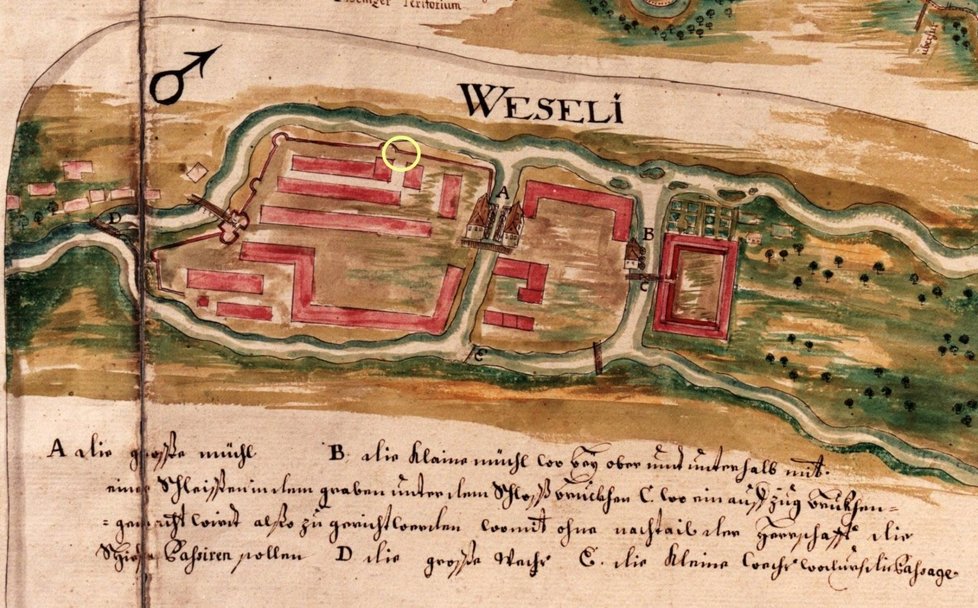 Territorium
WESELI
A
B
C
D
E
A die grosse mühl B. die Kleine mühl wo bey ober und unterhalb mit
einer Schleissen in dem graben unter dem Schloss brückhen C. wo ein auff zug brukhen=
=gemacht wirdt also zu gericht werden womit ohne nachtail der Herrschafft die
Schiffe Passiren sollen D die grosse Wehr E. die Kleine Wehr wodurch die Passage